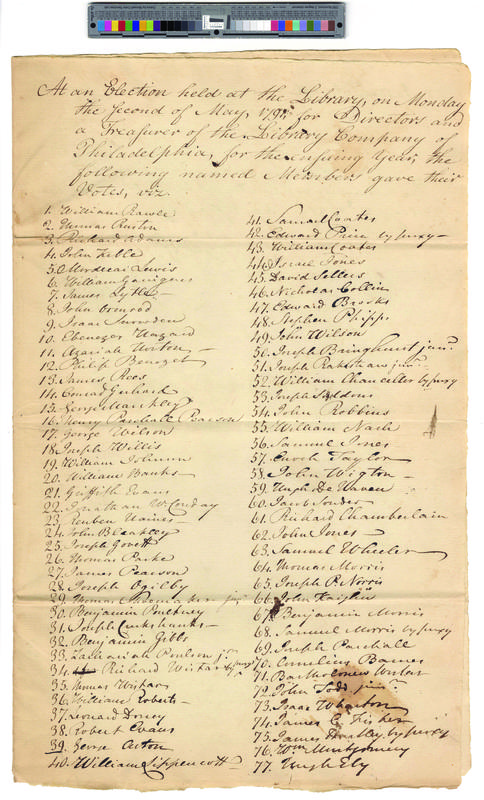 At an Election held at the Library, on Monday
the Second of May, 179 for Directors and
a Treasurer of the Library Company of
Philadelphia, for the ensuing Year, the
following named Members gave their
Votes, viz
1. William Rawle
2. Thomas Ruston
3. Richard Adams
4. John Keble
5. Mordecai Lewis
6. William Garrigues
7. James Lytle
8. John Ormrod
9. Isaac Snowden
10. Ebenezer Hazard
11. Azariah Horton
12. Philip Benezet
13. James Roos
14. Conrad Gerhard
15. George
16. Henry Paschall Pearson
17. George Wilson
18. Joseph Willis
19. William Johnson
20. William Banks
21. Griffith Evans
22. Jonathan W. Condy
23. Reuben Haines
24. John B
25. Joseph Govett
26. Thomas Parke
27. James Pearson
28. Joseph Ogilby
29. Thomas junr
30. Benjamin Poultney
31. Joseph Cruikshank
32. Benjamin Gibbs
33. Zachariah Poulson jr
34. Richard Wistar by proxy
35. Thomas Wistar
36. William Roberts
37. Leonard Dorsey
38. Robert Evans
39. George Aston
40. William Lippencott
41. Samuel Coates
42. Edward Price by proxy
43. William Coates
44. Israel Jones
45. David Sellers
46. Nicholas Collin
47. Edward Brooks
48. Stephen Phipps
49. John Wilson
50. Joseph Bringhurst junr
51. Joseph Rakestraw junr
52. William Chancellor by proxy
53. Joseph Siddons
54. John Robbins
55. William Nash
56. Samuel Jones
57. Enoch Taylor
58. John Wigton
59. Hugh De Haven
60. Jacob Souder
61. Richard Chamberlain
62. John Jones
63. Samuel Wheeler
64. Thomas Morris
65. Joseph P. Norris
66. John Kaighn
67. Benjamin Morris
68. Samuel Morris by proxy
69. Joseph Paschall
70. Cornelius Barnes
71. Bartholomew Wistar
72. John Todd junr
73. Isaac Wharton
74. James C. Fisher
75. James Bradley by proxy
76. Wm Montgomery
77. Hugh Ely